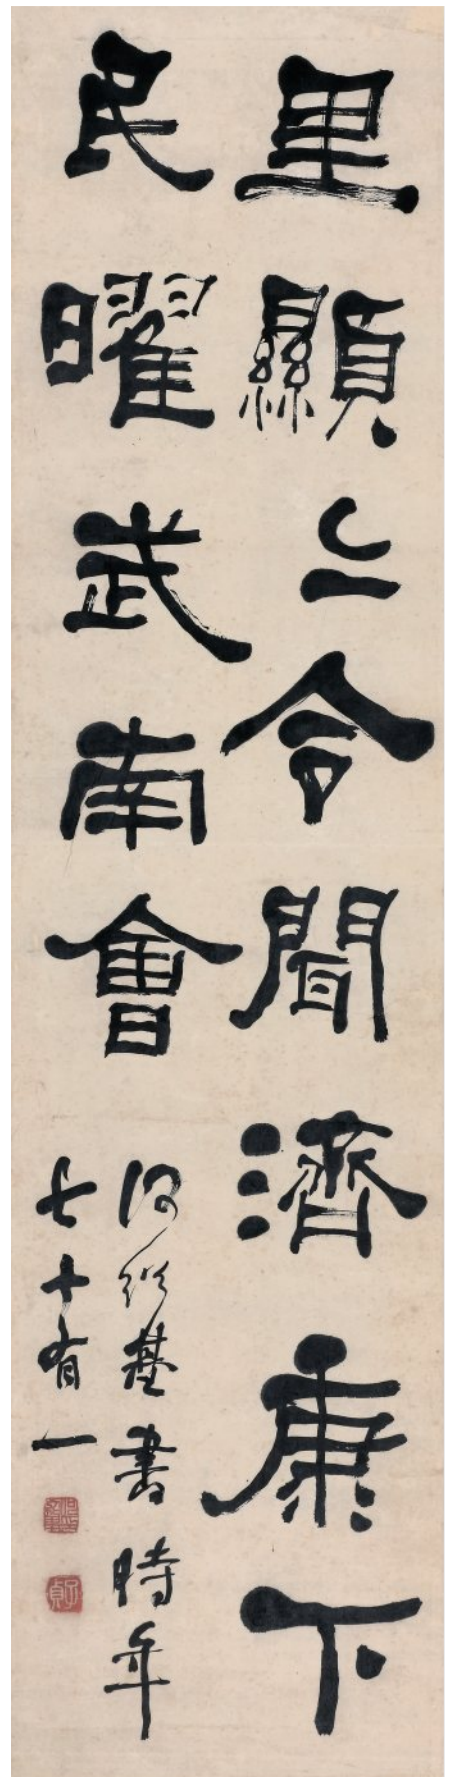 里顯〻令聞濟康下
民曜武南會
何紹基書時年
七十有一
子貞